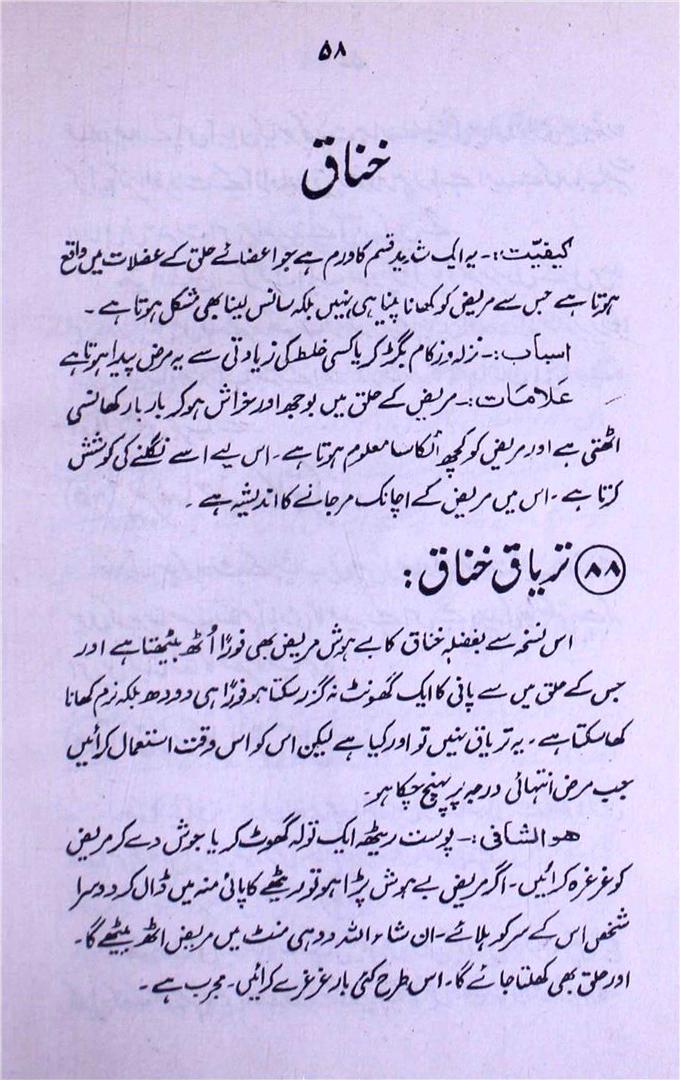 ۵۸
خناق
کیفیّت:۔ یہ ایک شدید قسم کا ورم ہے جو اعضائے حلق کے عضلات میں واقع
ہوتا ہے جس سے مریض کو کھانا پینا ہی نہیں بلکہ سانس لینا بھی مشکل ہوتا ہے۔
اسباب:۔ نزلہ و زکام بگڑ کر یا کسی خلط کی زیادتی سے یہ مرض پیدا ہوتا ہے
عَلامات:۔ مریض کے حلق میں بوجھ اور خراش ہو کر بار بار کھانسی
اٹھتی ہے اور مریض کو کچھ اٹکا سا معلوم ہوتا ہے۔ اس لیے اسے نگلنے کی کوشش
کرتا ہے۔ اس میں مریض کے اچانک مر جانے کا اندیشہ ہے۔
۸۸ تریاق خناق:
اس نسخہ سے بفضلہٖ خناق کا بے ہوش مریض بھی فورًا اُٹھ بیٹھتا ہے اور
جس کے حلق میں سے پانی کا ایک گھونٹ نہ گزر سکتا ہو فورًا ہی دودھ بلکہ نرم کھانا
کھا سکتا ہے۔ یہ تریاق نہیں تو اور کیا ہے لیکن اس کو اس وقت استعمال کرائیں
جب مرض انتہائی درجہ پر پہنچ چکا ہو۔
ھو الشافی:۔ پوست ریٹھہ ایک تولہ گھوٹ کر یا جوش دے کر مریض
کو غرغرہ کرائیں۔ اگر مریض بے ہوش پڑا ہو تو ریٹھے کا پانی منہ میں ڈال کر دوسرا
شخص اس کے سر کو ہلائے۔ ان شاء اللہ دو ہی منٹ میں مریض اٹھ بیٹھے گا۔
اور حلق بھی کھلتا جائے گا۔ اس طرح کئی بار غرغرے کرائیں۔ مجرب ہے۔